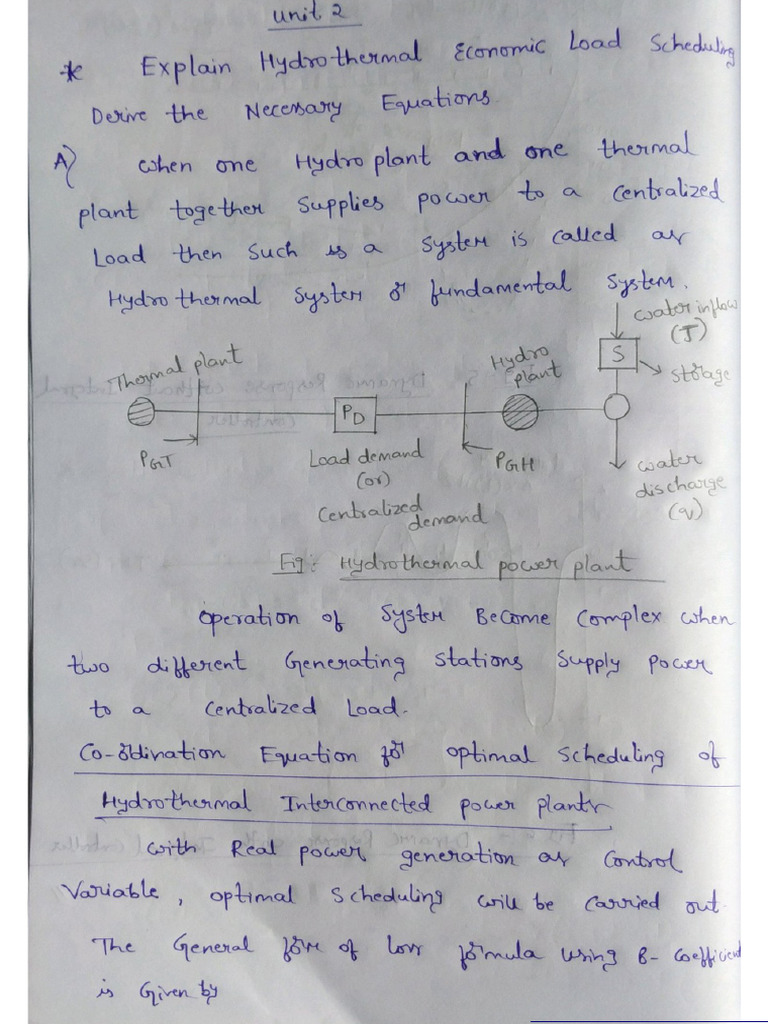 Unit 2
* Explain Hydrothermal Economic Load Scheduling
Derive the Necessary Equations.
A) When one Hydro plant and one thermal
plant together Supplies power to a Centralized
Load then Such is a System is called as
Hydrothermal System or fundamental System.
water inflow
(J)
S
storage
Thermal plant
Hydro
plant
PD
PGT
Load demand
(or)
Centralized
demand
PGH
water
discharge
(q)
Fig: Hydrothermal power plant
Operation of System Become Complex when
two different Generating Stations Supply Power
to a Centralized Load.
Co-ordination Equation for optimal Scheduling of
Hydrothermal Interconnected power plants
with Real power generation as Control
Variable, optimal Scheduling will be Carried out.
The General form of loss formula using B- Coefficient
is Given by